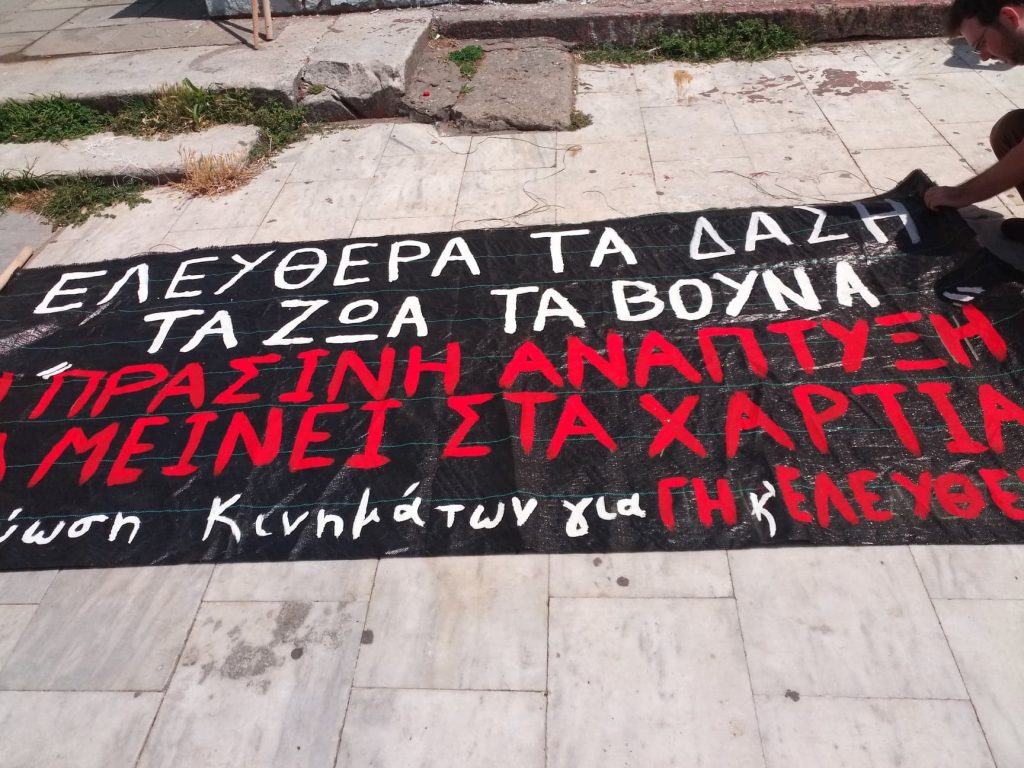 ΕΛΕΥΘΕΡΑ ΤΑ ΔΑΣΗ
ΤΑ ΖΩΑ ΤΑ ΒΟΥΝΑ
Η "ΠΡΑΣΙΝΗ ΑΝΑΠΤΥΞΗ
ΜΕΙΝΕΙ ΣΤΑ ΧΑΡΤΙΑ
Κινημάτων για ΓΗ κ' ΕΛΕΥΘΕ